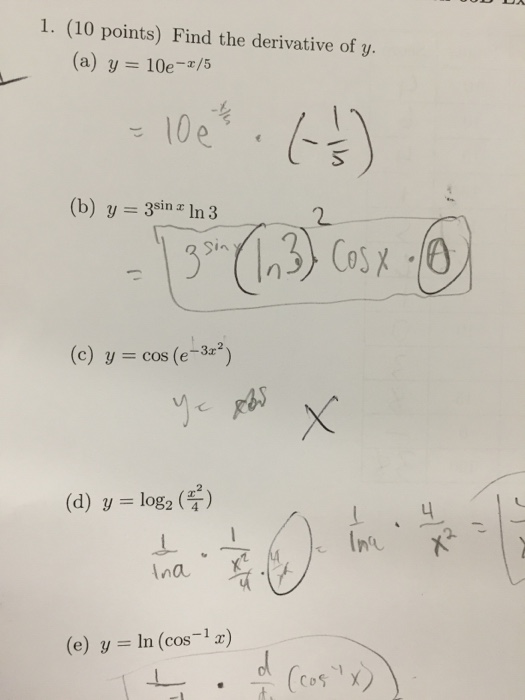 1. (10 points) Find the derivative of y.
(a) y = 10e^{-x/5}
= 10e^{-x/5} · (-1/5)
(b) y = 3^{sin x} ln 3
= 3^{sin x} (ln 3)^2 · cos x ·
(c) y = cos (e^{-3x^2})
y =
X
(d) y = log_2 (x^2/4)
1/ln a · 1/(x^2/4) · = 1/ln a · 4/x^2 =
(e) y = ln (cos^{-1} x)
· d (cos^{-1} x)